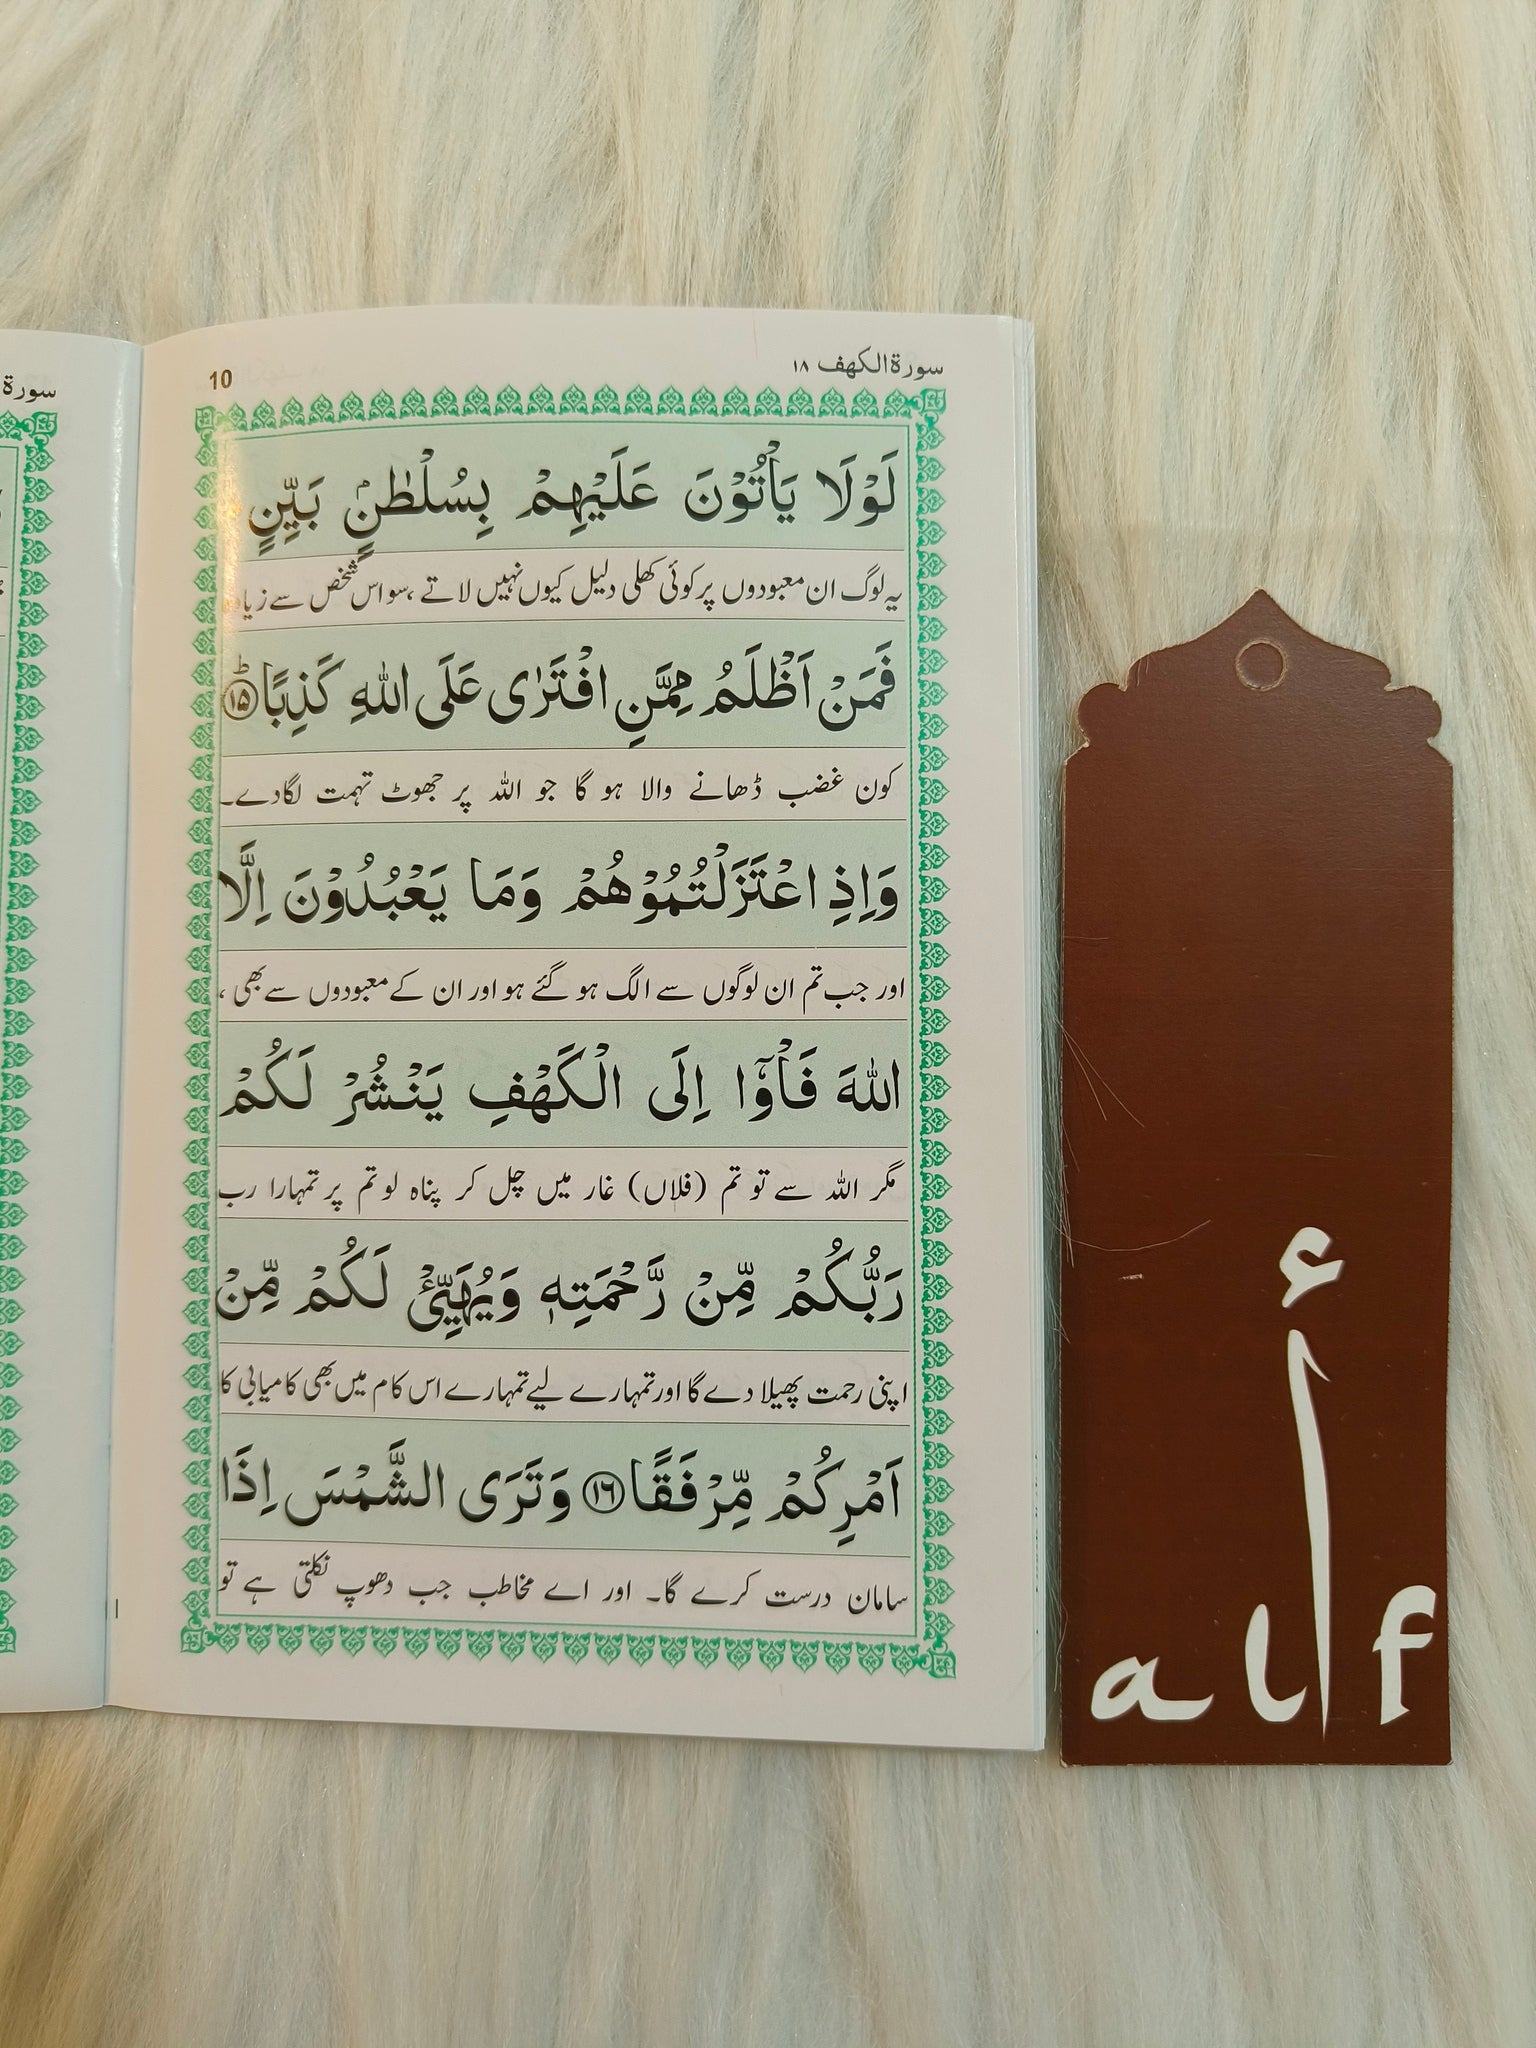 سورة الكهف ١٨
10
لَوْلَا يَاْتُوْنَ عَلَيْهِمْ بِسُلْطٰنٍۭ بَيِّنٍ
یہ لوگ ان معبودوں پر کوئی کھلی دلیل کیوں نہیں لاتے ، سو اس شخص سے زیادہ
فَمَنْ اَظْلَمُ مِمَّنِ افْتَرٰى عَلَى اللّٰهِ كَذِبًاؕ ۝۱۵
کون غضب ڈھانے والا ہو گا جو اللہ پر جھوٹ تہمت لگادے۔
وَاِذِ اعْتَزَلْتُمُوْهُمْ وَمَا يَعْبُدُوْنَ اِلَّا
اور جب تم ان لوگوں سے الگ ہو گئے ہو اور ان کے معبودوں سے بھی ،
اللّٰهَ فَاْوٗۤا اِلَى الْكَهْفِ يَنْشُرْ لَكُمْ
مگر اللہ سے تو تم (فلاں) غار میں چل کر پناہ لو تم پر تمہارا رب
رَبُّكُمْ مِّنْ رَّحْمَتِهٖ وَيُهَيِّئْ لَكُمْ مِّنْ
اپنی رحمت پھیلا دے گا اور تمہارے لیے تمہارے اس کام میں بھی کامیابی کا
اَمْرِكُمْ مِّرْفَقًا ۝۱۶ وَتَرَى الشَّمْسَ اِذَا
سامان درست کرے گا۔ اور اے مخاطب جب دھوپ نکلتی ہے تو
سورة
أ
alf